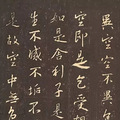 異空空不異色
空即是色受想
如是舍利子是
生不滅不垢不
是故空中無色